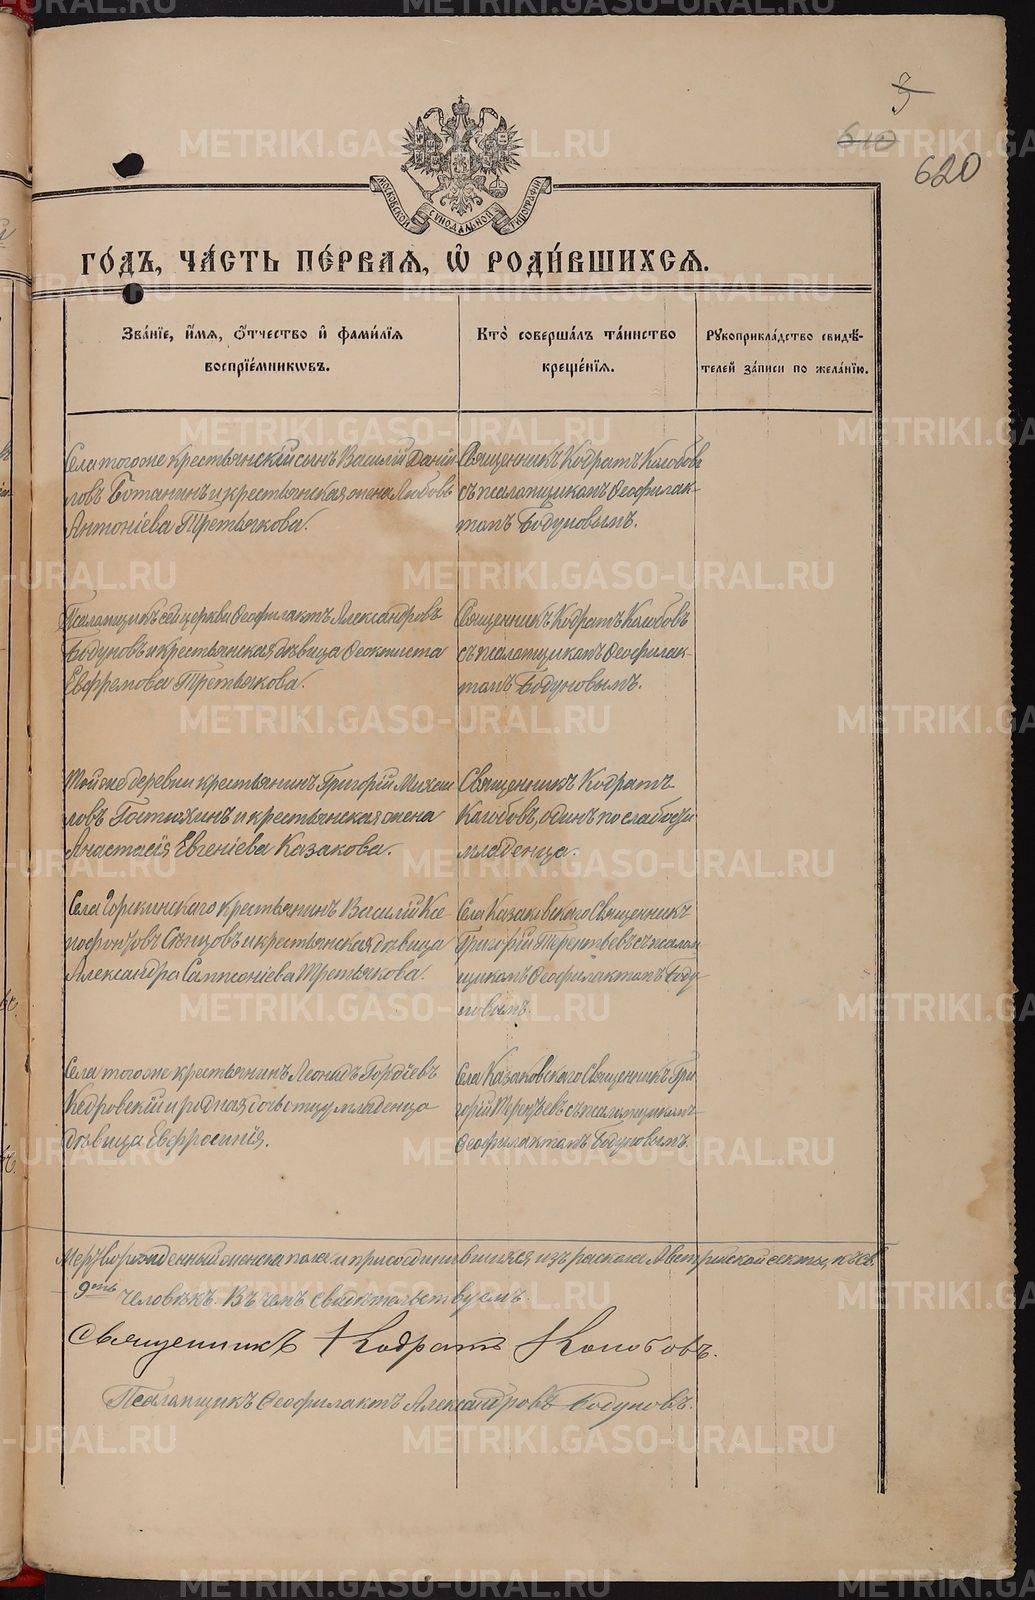 3
610
620
МОСКОВСКОЙ СѴНОДАЛЬНОЙ ТИПОГРАФІИ
ГО́ДЪ, ЧА́СТЬ ПЕ́РВАѦ, Ѽ РОДИ́ВШИХСѦ.
Зва́нїе, и҆́мѧ, ѻ҆́тчество и҆ фами́лїѧ
воспрїе́мникѡвъ.
Кто̀ соверша́лъ та́инство
креще́нїѧ.
Рꙋкоприкла́дство свидѣ́-
телей за́писи по жела́нїю.
Села тогоже крестьянскій сынъ Василій Даніи-
ловъ Ботанинъ и крестьянская жена Любовь
Антоніева Третьякова.
Священникъ Кодратъ Колобовъ
съ псаломщикомъ Ѳеофилак-
томъ Бодуновымъ.
Псаломщикъ сей церкви Ѳеофилактъ Александровъ
Бодуновъ и крестьянская дѣвица Ѳеоктиста
Евфремова Третьякова.
Священникъ Кодратъ Колобовъ
съ псаломщикомъ Ѳеофилак-
томъ Бодуновымъ.
Той же деревни крестьянинъ Григорій Михаи
ловъ Гостюхинъ и крестьянская жена
Анастасія Евгеніева Казакова.
Священникъ Кодратъ
Колобовъ, одинъ по слабости
младенца.
Села Горскинскаго крестьянинъ Василій Ксе
нофонтовъ Сѣнцовъ и крестьянская дѣвица
Александра Сампсоніева Третьякова.
Села Казаковскаго Священникъ
Григорій Терентьевъ съ псалом
щикомъ Ѳеофилактомъ Боду
новымъ.
Села тогоже крестьянинъ Леонидъ Гордіевъ
Кедровскій и родная дочь отцу младенца
дѣвица Евфросинія.
Села Казаковскаго Священникъ Гри
горій Терентьевъ съ псаломщикомъ
Ѳеофилактомъ Бодуновымъ.
Мертворожденный женска пола и присоединившихся изъ раскола Австрійской секты,
9ть человѣкъ. Въ чемъ свидѣтельствуемъ.
Священникъ Кодратъ Колобовъ.
Псаломщикъ Ѳеофилактъ Александровъ Бодуновъ.
METRIKI.GASO-URAL.RU